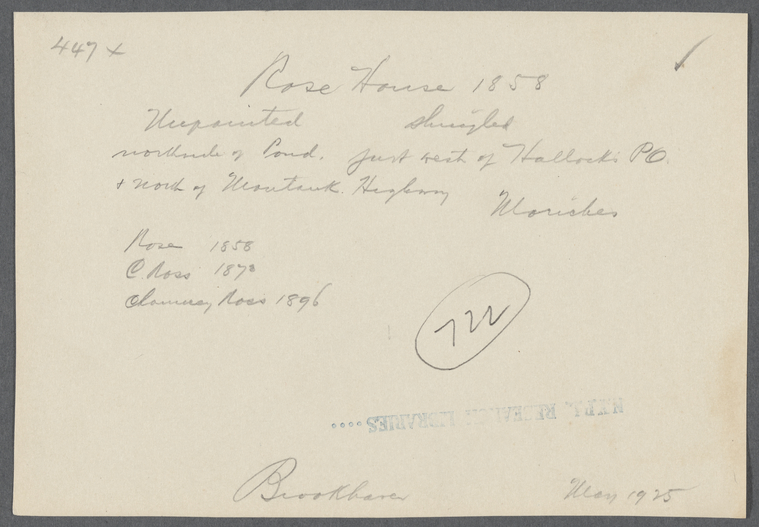 447 x
Rose House 1858
Unpainted shingled
northside of Pond. just west of Hallock's PO.
+ north of Montauk Highway
Moriches
Rose 1858
C. Ross 1873
Chauncey Ross 1896
722
N.Y.P.L. RESEARCH LIBRARIES
Brookhaven
May 1925